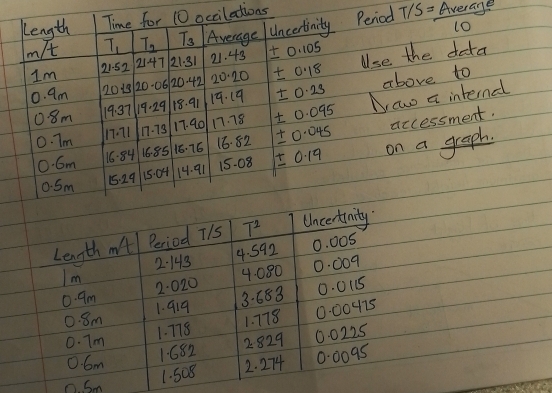 Length m/t | Time for 10 occilations | Uncertinity
T1 | T2 | T3 | Average
1m | 21.52 | 21.47 | 21.31 | 21.43 | ± 0.105
0.9m | 20.13 | 20.06 | 20.42 | 20.20 | ± 0.18
0.8m | 19.37 | 19.29 | 18.91 | 19.19 | ± 0.23
0.7m | 17.71 | 17.73 | 17.90 | 17.78 | ± 0.095
0.6m | 16.84 | 16.85 | 16.76 | 16.82 | ± 0.045
0.5m | 15.29 | 15.04 | 14.91 | 15.08 | ± 0.19
Period T/S = Average
10
Use the data
above to
Draw a internal
accessment.
on a graph.
Length m/t | Period T/S | T² | Uncertinity.
1m | 2.143 | 4.592 | 0.005
0.9m | 2.020 | 4.080 | 0.009
0.8m | 1.919 | 3.683 | 0.0115
0.7m | 1.778 | 1.778 | 0.00475
0.6m | 1.682 | 2.829 | 0.0225
0.5m | 1.508 | 2.274 | 0.0095